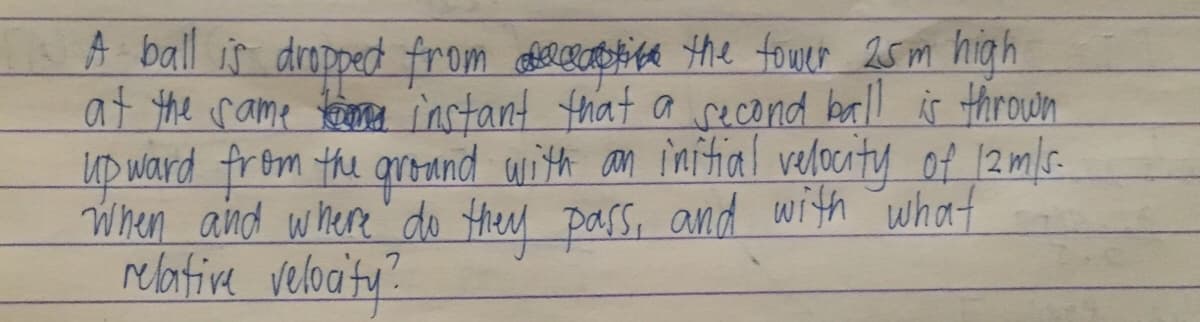 A ball is dropped from the tower 25m high
at the same instant that a second ball is thrown
upward from the ground with an initial velocity of 12m/s.
When and where do they pass, and with what
relative velocity?